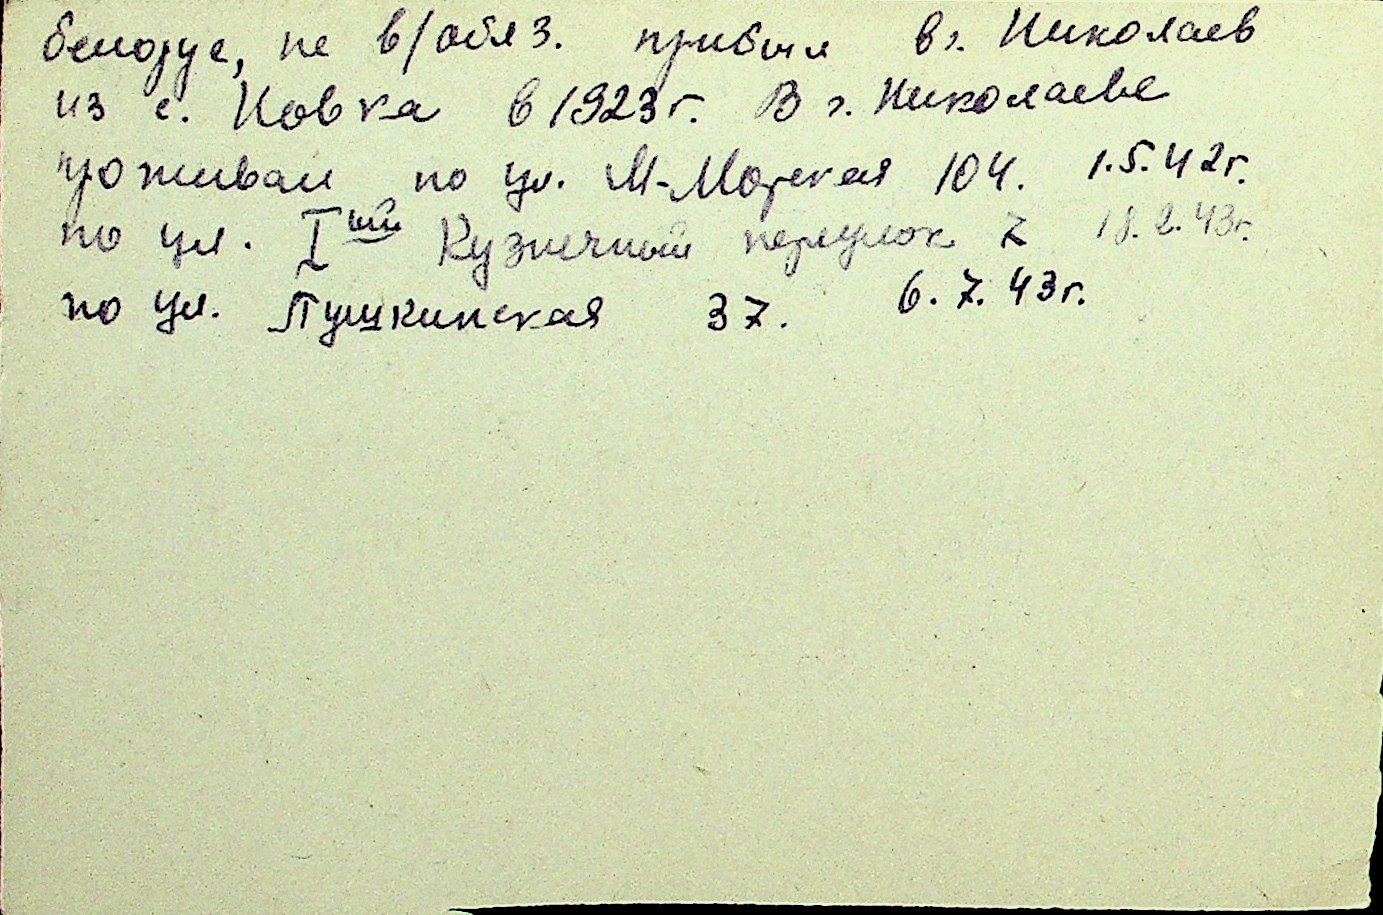 белорус, не в/обяз. прибыл в г. Николаев
из с. Ковка в 1923 г. В г. Николаеве
проживал по ул. М-Морская 104. 1.5.42г.
по ул. I ый Кузнечный переулок 2 18.2.43г.
по ул. Пушкинская 37. 6.7.43г.